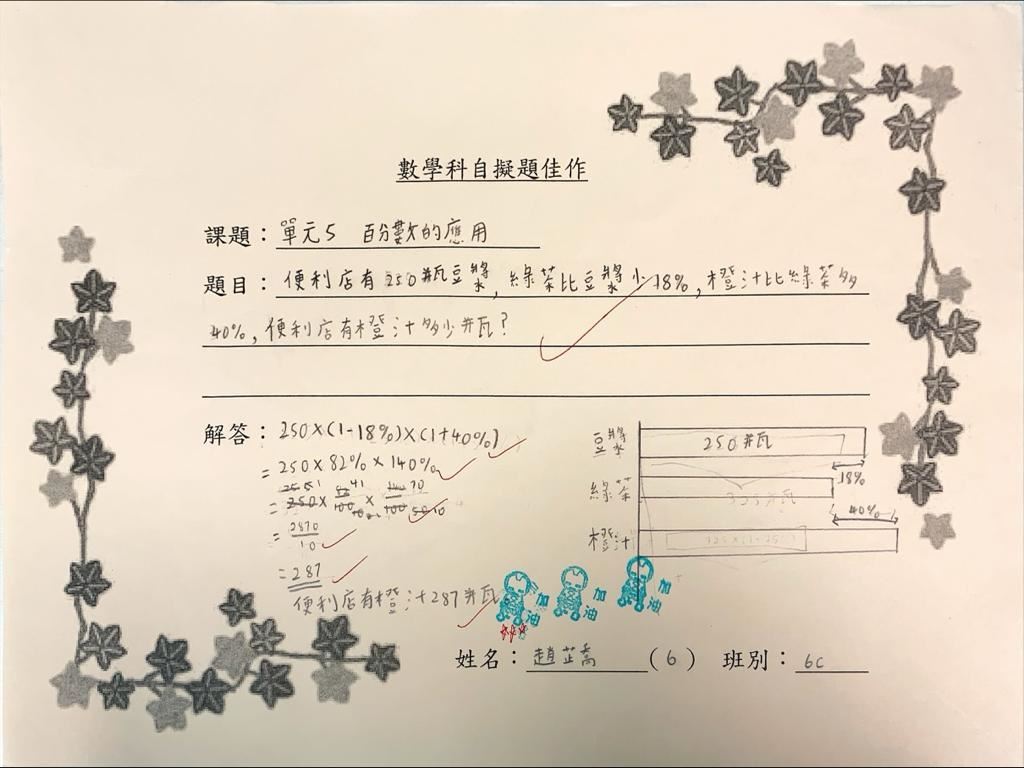 數學科自擬題佳作
課題：單元5 百分數的應用
題目：便利店有250瓶豆漿，綠茶比豆漿少18%，橙汁比綠茶多
40%，便利店有橙汁多少瓶？
解答：250×(1-18%)×(1+40%)
=250×82%×140%
2870
10
=287
便利店有橙汁287瓶
豆漿 250瓶
18%
綠茶
40%
橙汁
加油 加油 加油
姓名：趙芷喬 (6) 班別：6C